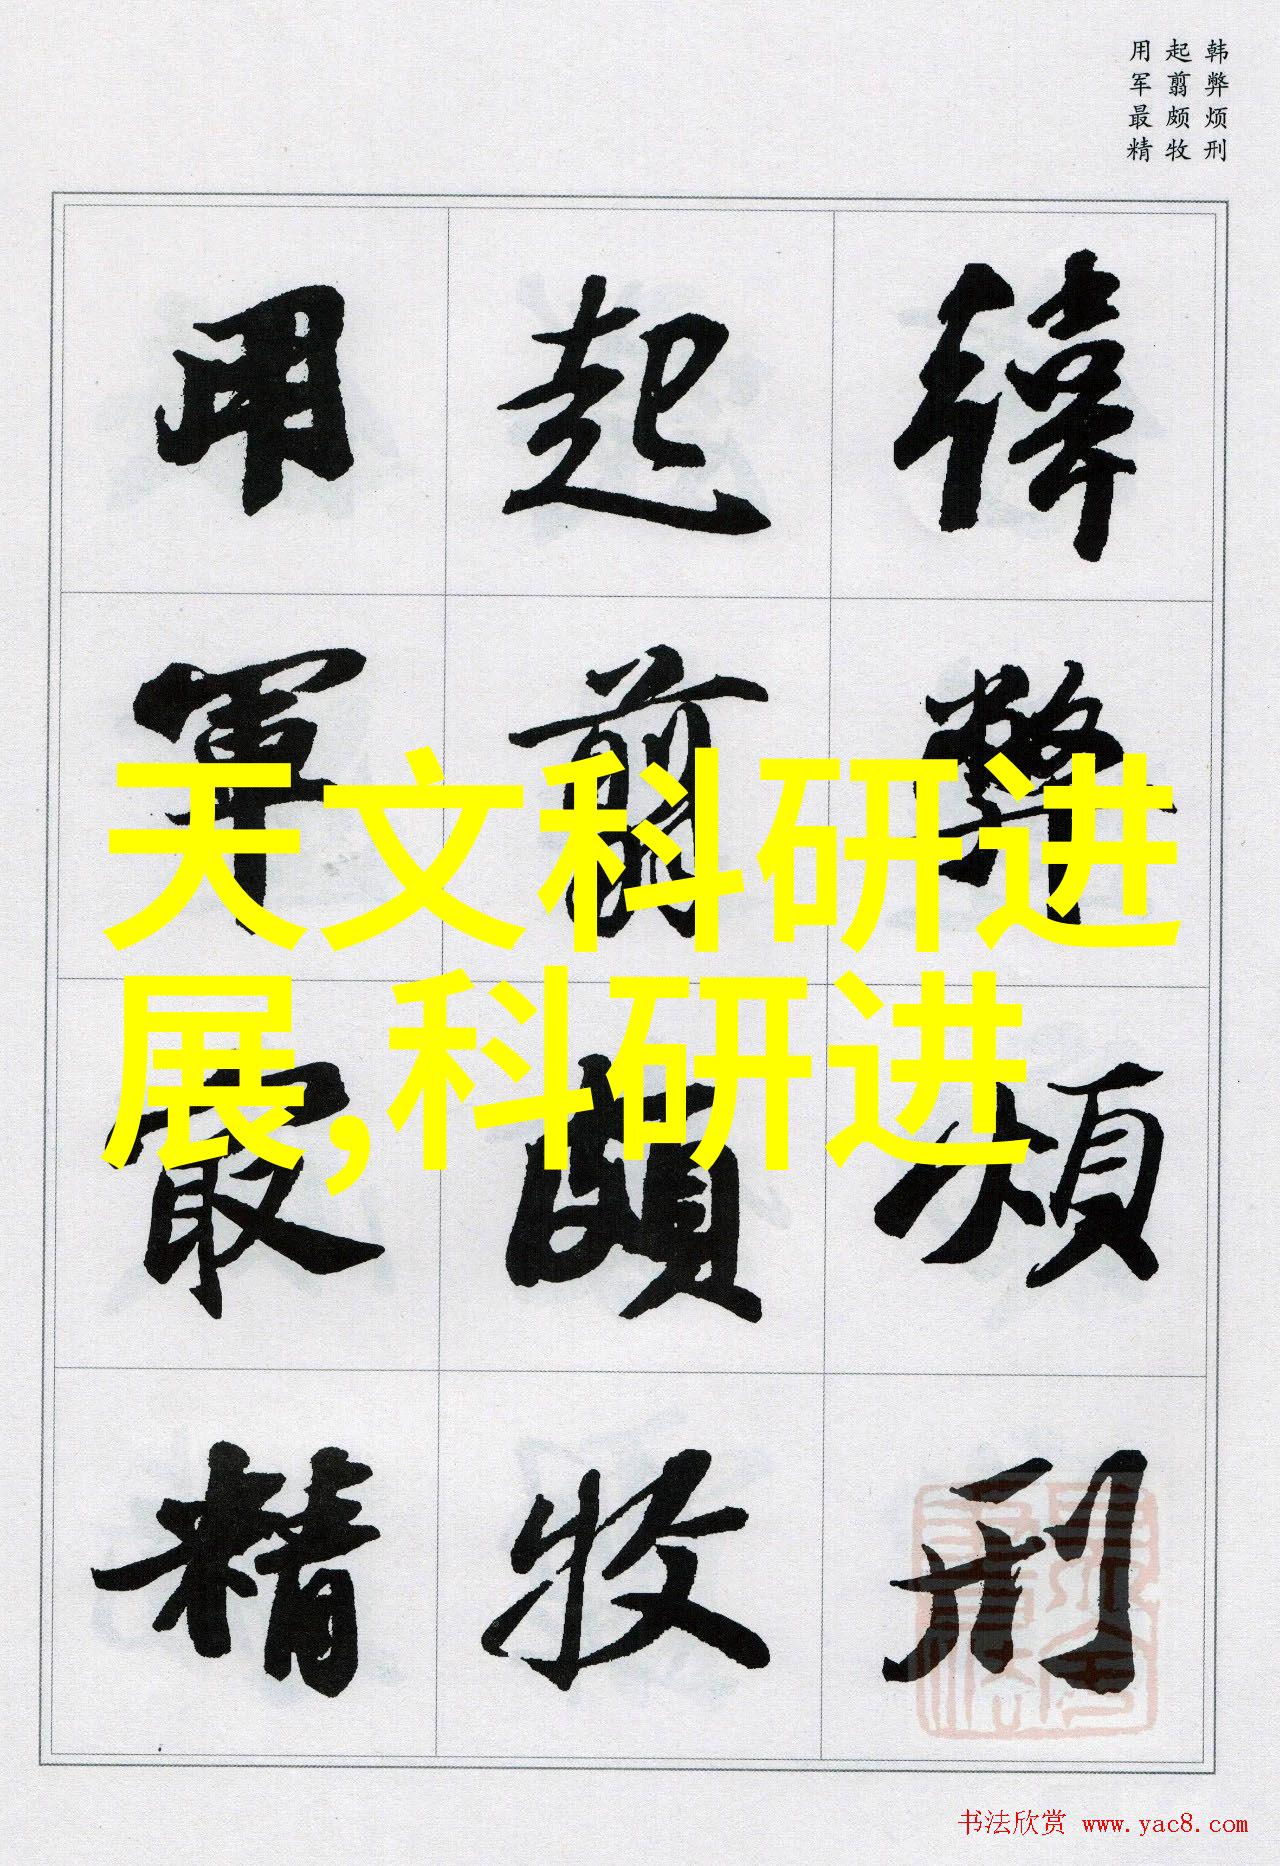 韩弊烦刑
起翦颇牧
用军最精
韓弊煩刑
起翦頗牧
用軍最精
天文科研进
展,科研进
书法欣赏 www.yac8.com